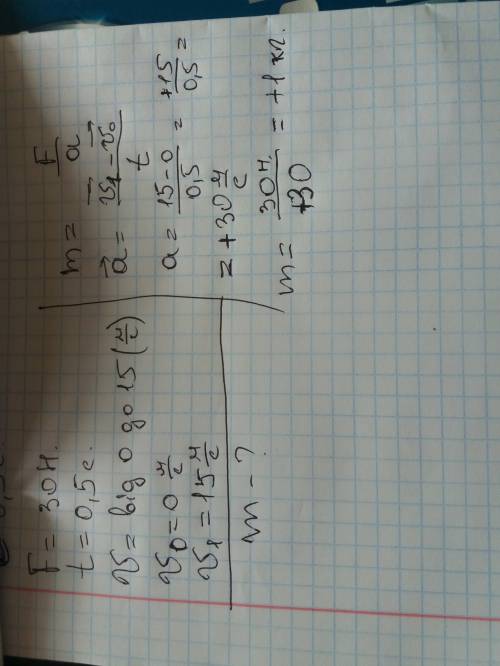 0,5 с.
F = 30 Н.
t = 0,5 с.
v = від 0 до 15 (м/с)
v₀ = 0 м/с
v₁ = 15 м/с
m - ?
m = F/a
a⃗ = (v⃗₁ - v⃗₀)/t
a = (15 - 0)/0,5 = +15/0,5 =
= +30 м/с
m = 30 Н./+30 = +1 кг.